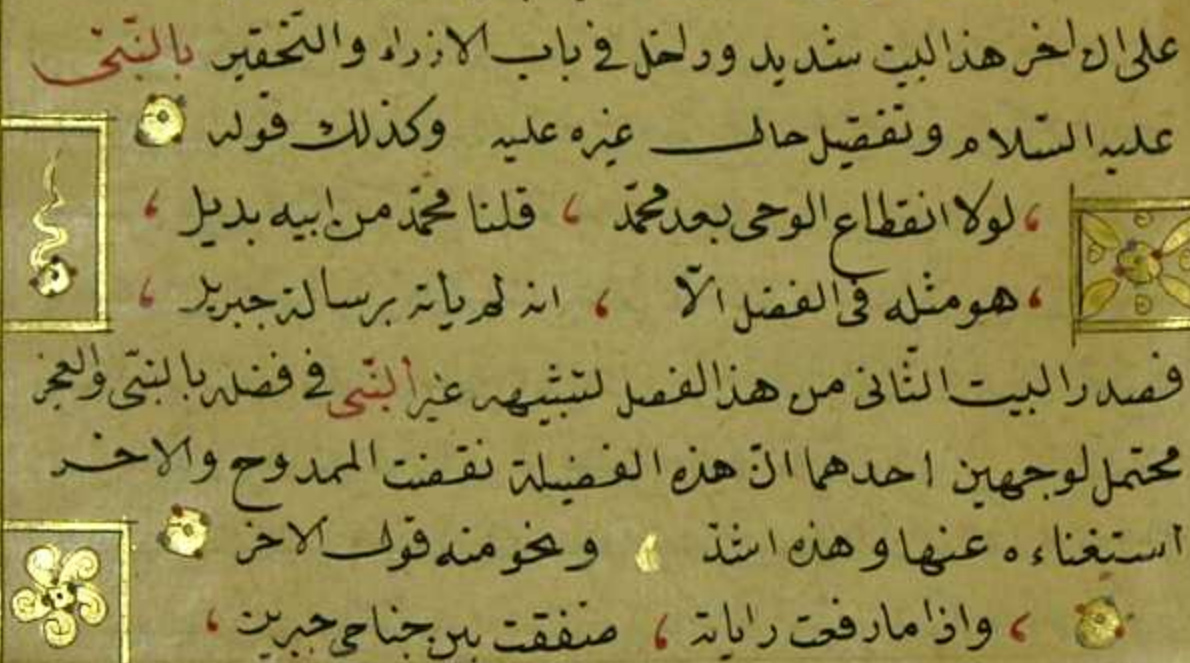 على ان اخر هذا البيت شديد وداخل في باب الازراء والتحقير بالنبى
عليه السلام وتفضيل حال غيره عليه وكذلك قوله
لولا انقطاع الوحى بعد محمد ، قلنا محمد من ابيه بديل ،
هو مثله فى الفضل الّا ، انه لم يأته برسالة جبريل ،
فصدر البيت الثانى من هذا الفصل لتشبيهه غير النبى في فضله بالنبى والعجز
محتمل لوجهين احدهما انّ هذه الفضيلة نقصت الممدوح والاخر
استغناءه عنها وهذه اشدّ ونحو منه قول الاخر
، واذا ما رفعت راياته ، صفقت بين جناحى جبرين ،